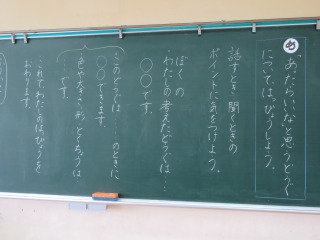 め
「あったらいいなと思うどうぐ」
についてはっぴょうしよう。
話すとき・聞くときの
ポイントに気をつけよう。
ぼくの
わたしの考えたどうぐは…
〇〇です。
このどうぐは……のときに、
〇〇できます。
色や大きさ、
…です。
これでわたしのはっぴょうを
おわります。